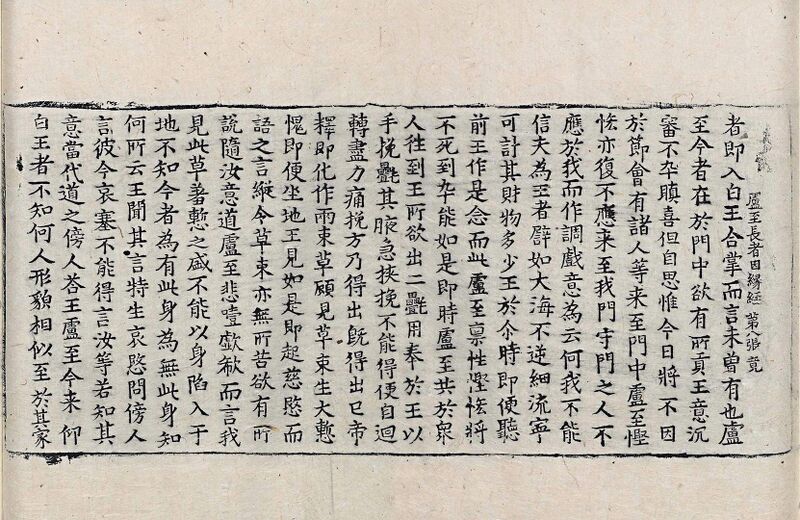 盧至長者因緣經 第八張 竟
者即入白王合掌而言未曾有也盧
至今者在於門中欲有所貢王意沉
審不卒瞋喜但自思惟今日將不因
於節會有諸人等来至門中盧至慳
恡亦復不應来至我門守門之人不
應於我而作調戲意為云何我不能
信夫為王者譬如大海不逆細流寧
可計其財物多少王於尒時即便聽
前王作是念而此盧至禀性慳恡將
不死到卒能如是即時盧至共於衆
人徃到王所欲出二㲲用奉於王以
手挽㲲其腋急挾挽不能得便自迴
轉盡力痛挽方乃得出旣得出已帝
釋即化作兩束草顧見草束生大慙
愧即便坐地王見如是即起慈愍而
語之言縱令草束亦無所苦欲有所
說隨汝意道盧至悲噎歔欷而言我
見此草著慙之盛不能以身陷入于
地不知今者為有此身為無此身知
何所云王聞其言特生哀愍問傍人
言彼今哀塞不能得言汝等若知其
意當代道之傍人荅王盧至今来仰
白王者不知何人形貌相似至於其家